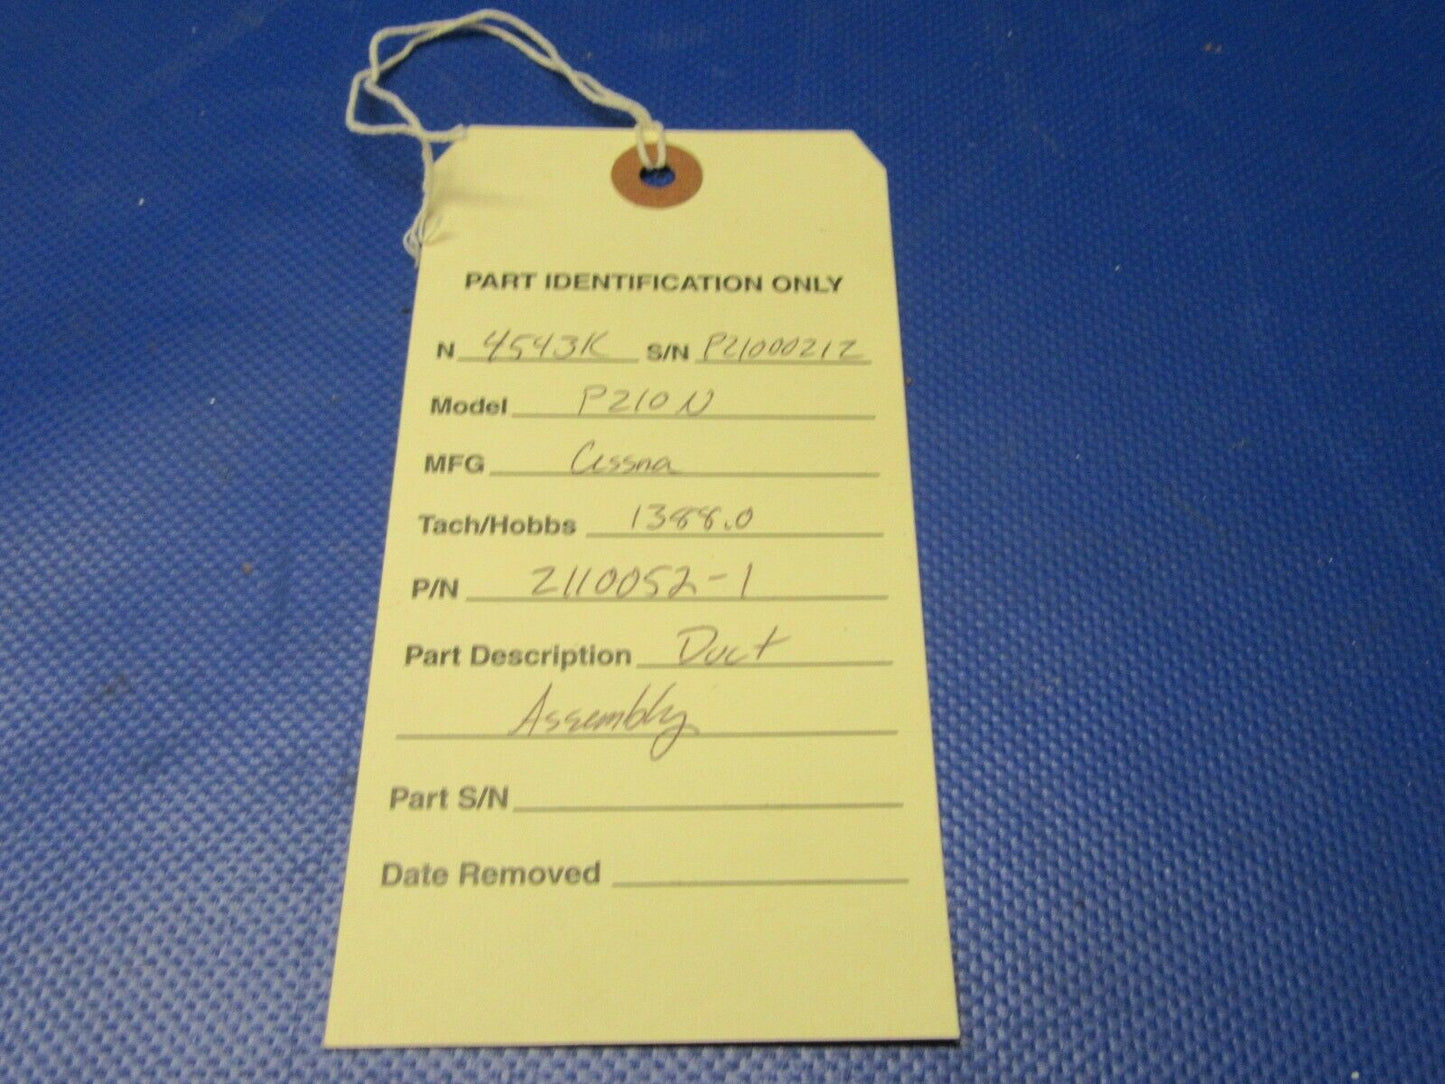 PART IDENTIFICATION ONLY
N 4543K S/N P21000212
Model P210N
MFG Cessna
Tach/Hobbs 1388.0
P/N 2110052-1
Part Description Duct
Assembly
Part S/N
Date Removed